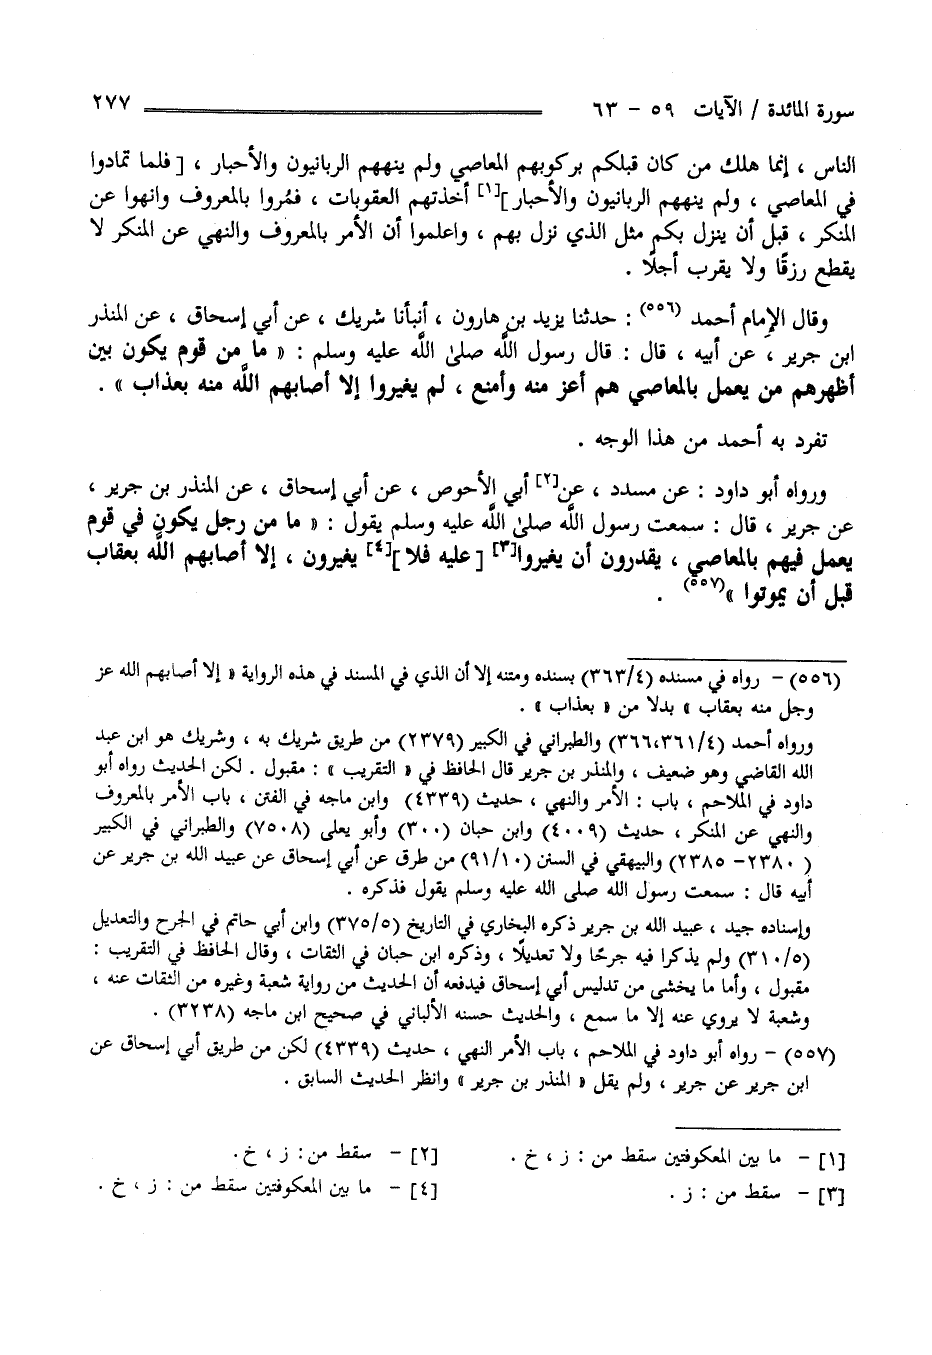 سورة المائدة / الآيات ٥٩ - ٦٣ ٢٧٧
الناس ، إنما هلك من كان قبلكم بركوبهم المعاصي ولم ينههم الربانيون والأحبار ، [ فلما تمادوا
في المعاصي ، ولم ينههم الربانيون والأحبار][١] أخذتهم العقوبات ، فمُروا بالمعروف وانهوا عن
المنكر ، قبل أن ينزل بكم مثل الذي نزل بهم ، واعلموا أن الأمر بالمعروف والنهي عن المنكر لا
يقطع رزقًا ولا يقرب أجلًا .
وقال الإمام أحمد (٥٥٦) : حدثنا يزيد بن هارون ، أنبأنا شريك ، عن أبي إسحاق ، عن المنذر
ابن جرير ، عن أبيه ، قال : قال رسول اللَّه صلىٰ اللَّه عليه وسلم : « ما من قوم يكون بين
أظهرهم من يعمل بالمعاصي هم أعز منه وأمنع ، لم يغيروا إلا أصابهم اللَّه منه بعذاب » .
تفرد به أحمد من هذا الوجه .
ورواه أبو داود : عن مسدد ، عن[٢] أبي الأحوص ، عن أبي إسحاق ، عن المنذر بن جرير ،
عن جرير ، قال : سمعت رسول اللَّه صلىٰ اللَّه عليه وسلم يقول : « ما من رجل يكون في قوم
يعمل فيهم بالمعاصي ، يقدرون أن يغيروا[٣] [ عليه فلا ][٤] يغيرون ، إلا أصابهم اللَّه بعقاب
قبل أن يموتوا »(٥٥٧) .
(٥٥٦) - رواه في مسنده (٣٦٣/٤) بسنده ومتنه إلا أن الذي في المسند في هذه الرواية « إلا أصابهم الله عز
وجل منه بعقاب » بدلا من « بعذاب » .
ورواه أحمد (٣٦٦،٣٦١/٤) والطبراني في الكبير (٢٣٧٩) من طريق شريك به ، وشريك هو ابن عبد
الله القاضي وهو ضعيف ، والمنذر بن جرير قال الحافظ في « التقريب » : مقبول . لكن الحديث رواه أبو
داود في الملاحم ، باب : الأمر والنهي ، حديث (٤٣٣٩) وابن ماجه في الفتن ، باب الأمر بالمعروف
والنهي عن المنكر ، حديث (٤٠٠٩) وابن حبان (٣٠٠) وأبو يعلى (٧٥٠٨) والطبراني في الكبير
( ٢٣٨٠- ٢٣٨٥) والبيهقي في السنن (٩١/١٠) من طرق عن أبي إسحاق عن عبيد الله بن جرير عن
أبيه قال : سمعت رسول الله صلى الله عليه وسلم يقول فذكره .
وإسناده جيد ، عبيد الله بن جرير ذكره البخاري في التاريخ (٣٧٥/٥) وابن أبي حاتم في الجرح والتعديل
(٣١٠/٥) ولم يذكرا فيه جرحًا ولا تعديلًا ، وذكره ابن حبان في الثقات ، وقال الحافظ في التقريب :
مقبول ، وأما ما يخشى من تدليس أبي إسحاق فيدفعه أن الحديث من رواية شعبة وغيره من الثقات عنه ،
وشعبة لا يروي عنه إلا ما سمع ، والحديث حسنه الألباني في صحيح ابن ماجه (٣٢٣٨) .
(٥٥٧) - رواه أبو داود في الملاحم ، باب الأمر النهي ، حديث (٤٣٣٩) لكن من طريق أبي إسحاق عن
ابن جرير عن جرير ، ولم يقل « المنذر بن جرير » وانظر الحديث السابق .
[١] - ما بين المعكوفتين سقط من : ز ، خ . [٢] - سقط من: ز ، خ.
[٣] - سقط من : ز . [٤] - ما بين المعكوفتين سقط من : ز ، خ .